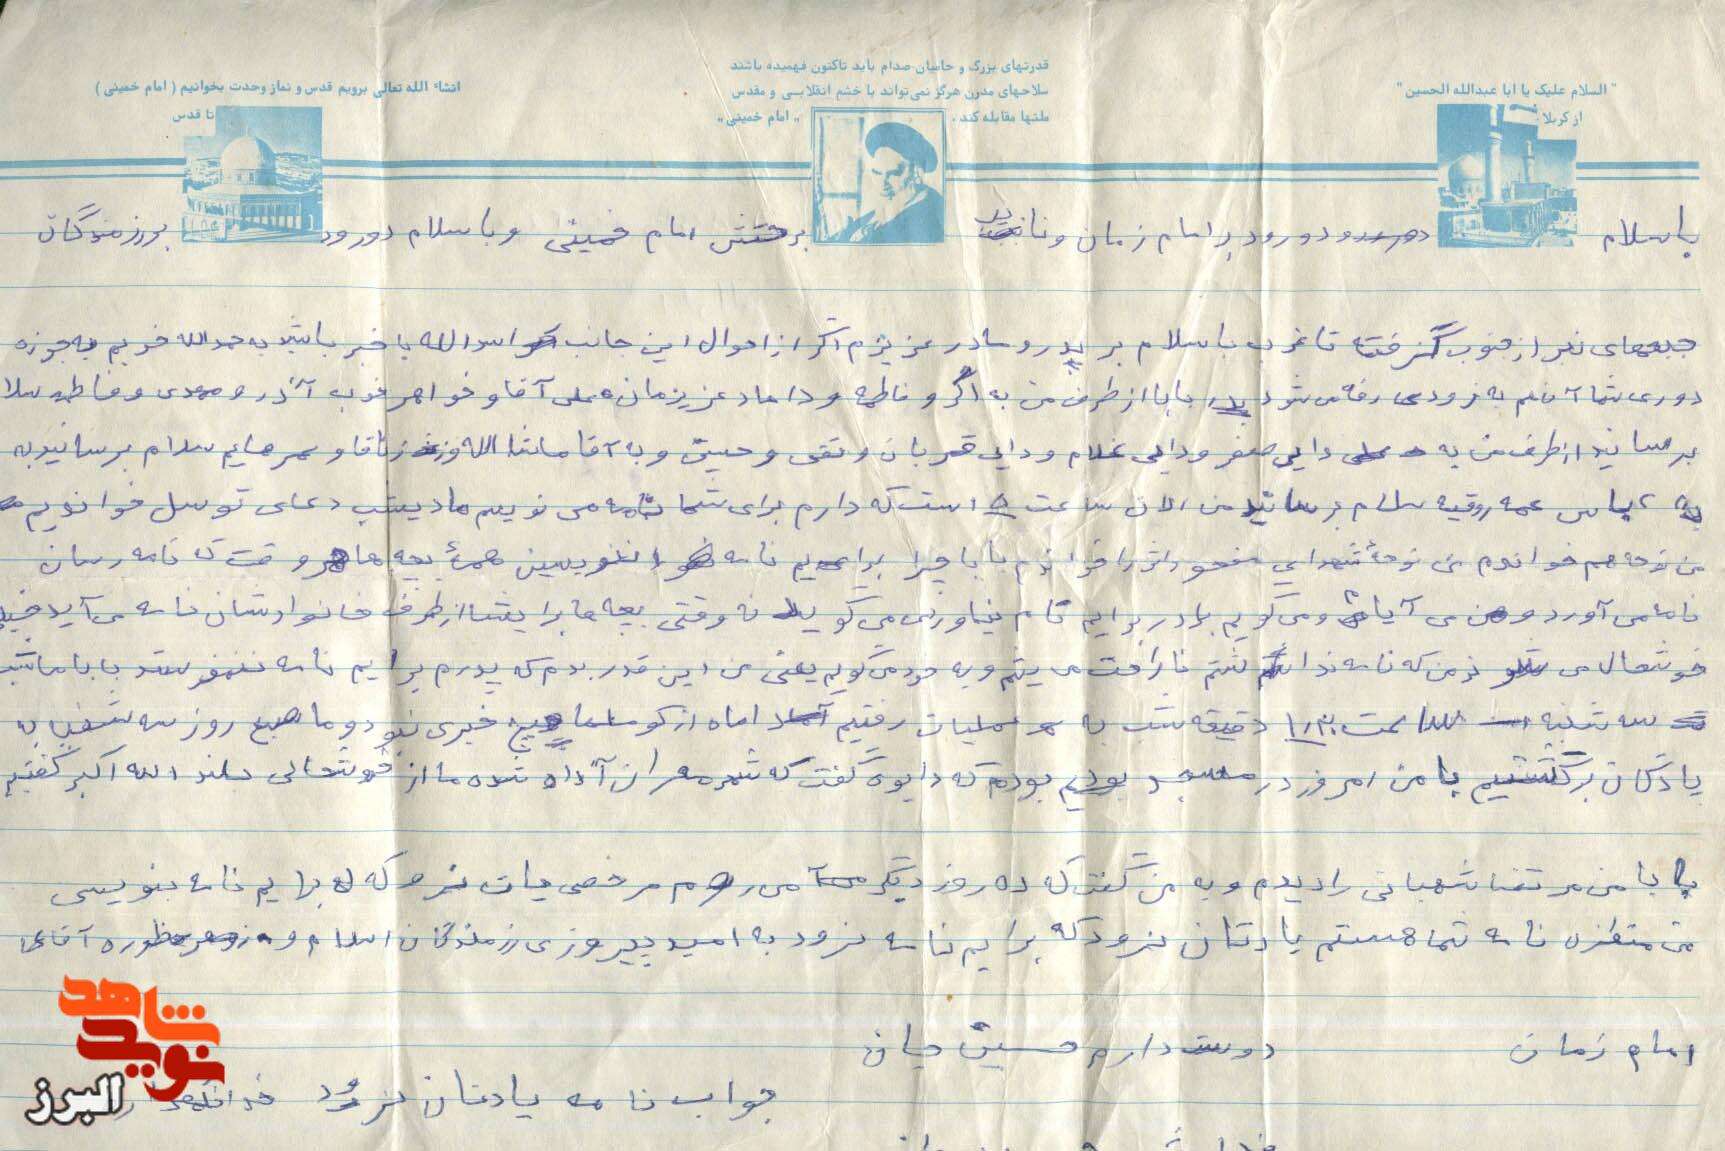 قدرتهای بزرگ و حامیان صدام باید تاکنون فهمیده باشند
سلاحهای مدرن هرگز نمی‌تواند با خشم انقلابی و مقدس
ملتها مقابله کند . " امام خمینی "
" السلام علیک یا ابا عبدالله الحسین "
از کربلا
انشاء الله تعالی برویم قدس و نماز وحدت بخوانیم ( امام خمینی )
تا قدس
با سلام و درود بر امام زمان و نائب بر حقش امام خمینی و با سلام و درود برزمندگان
جبهه‌های نبر از جنوب گرفته تا غرب با سلام بر پدر و مادر عزیزم اگر از احوال این جانب اسدالله با خبر باشید به حمدالله خوبم به جوزه
دوری شما آن هم به زودی رفه می شود بابا از طرف من به اگر و فاطمه و داماد عزیزمان علی آقا و خواهر خوب آذر و مهدی و فاطمه سلا
برسانید از طرف من به دایی صفر و دایی غلام و دایی قربان و تقی و حسین و به آقا ماشاالله و سلام برسانید به
به عباس عمه روقیه سلام برسانید من الان ساعت ۵ است که دارم برای شما نامه می نویسم ما دیشب دعای توسل خواندیم
من نوحه هم خواندم بابا چرا برایم نامه نمی نویسین همهٔ بچه ها هر وقت که نامه رسان
نامه می آورد و من می آیم و می گویم برادر برایم نامه نیاوردی می گوید نه وقتی بچه ها برایشا از طرف خانوادشان نامه می آید
خوشحال می شوند من که نامه ندارم نا راحت می شم و به خود می گویم یعنی من این قدر بدم که پدرم برایم نامه نفرستد بابا ما شب
سه شنبه ساعت ۱۱:۳۰ دقیقه شب به عملیات رفتیم اما از کوملها هیچ خبری نبود و ما صبح روز سه شنبه به
پادگان برگشتیم بابا من امروز در مسجد بودم که رادیو گفت که شهر مهران آزاد شده ما از خوشحالی بلند الله اکبر گفتیم
بابا من مرتضا شهبانی را دیدم و به من گفت که ده روز دیگر می روم مرخصی یادت نرود که برایم نامه بنویسی
من منتظره نامه شما هستم یادتان نرود که برایم نامه نرود به امید پیروزی رزمندگان اسلام و ظهوره آقای
امام زمان
دوست دارم حسین جان
جواب نامه یادتان نرود
شاهد
نوید
البرز